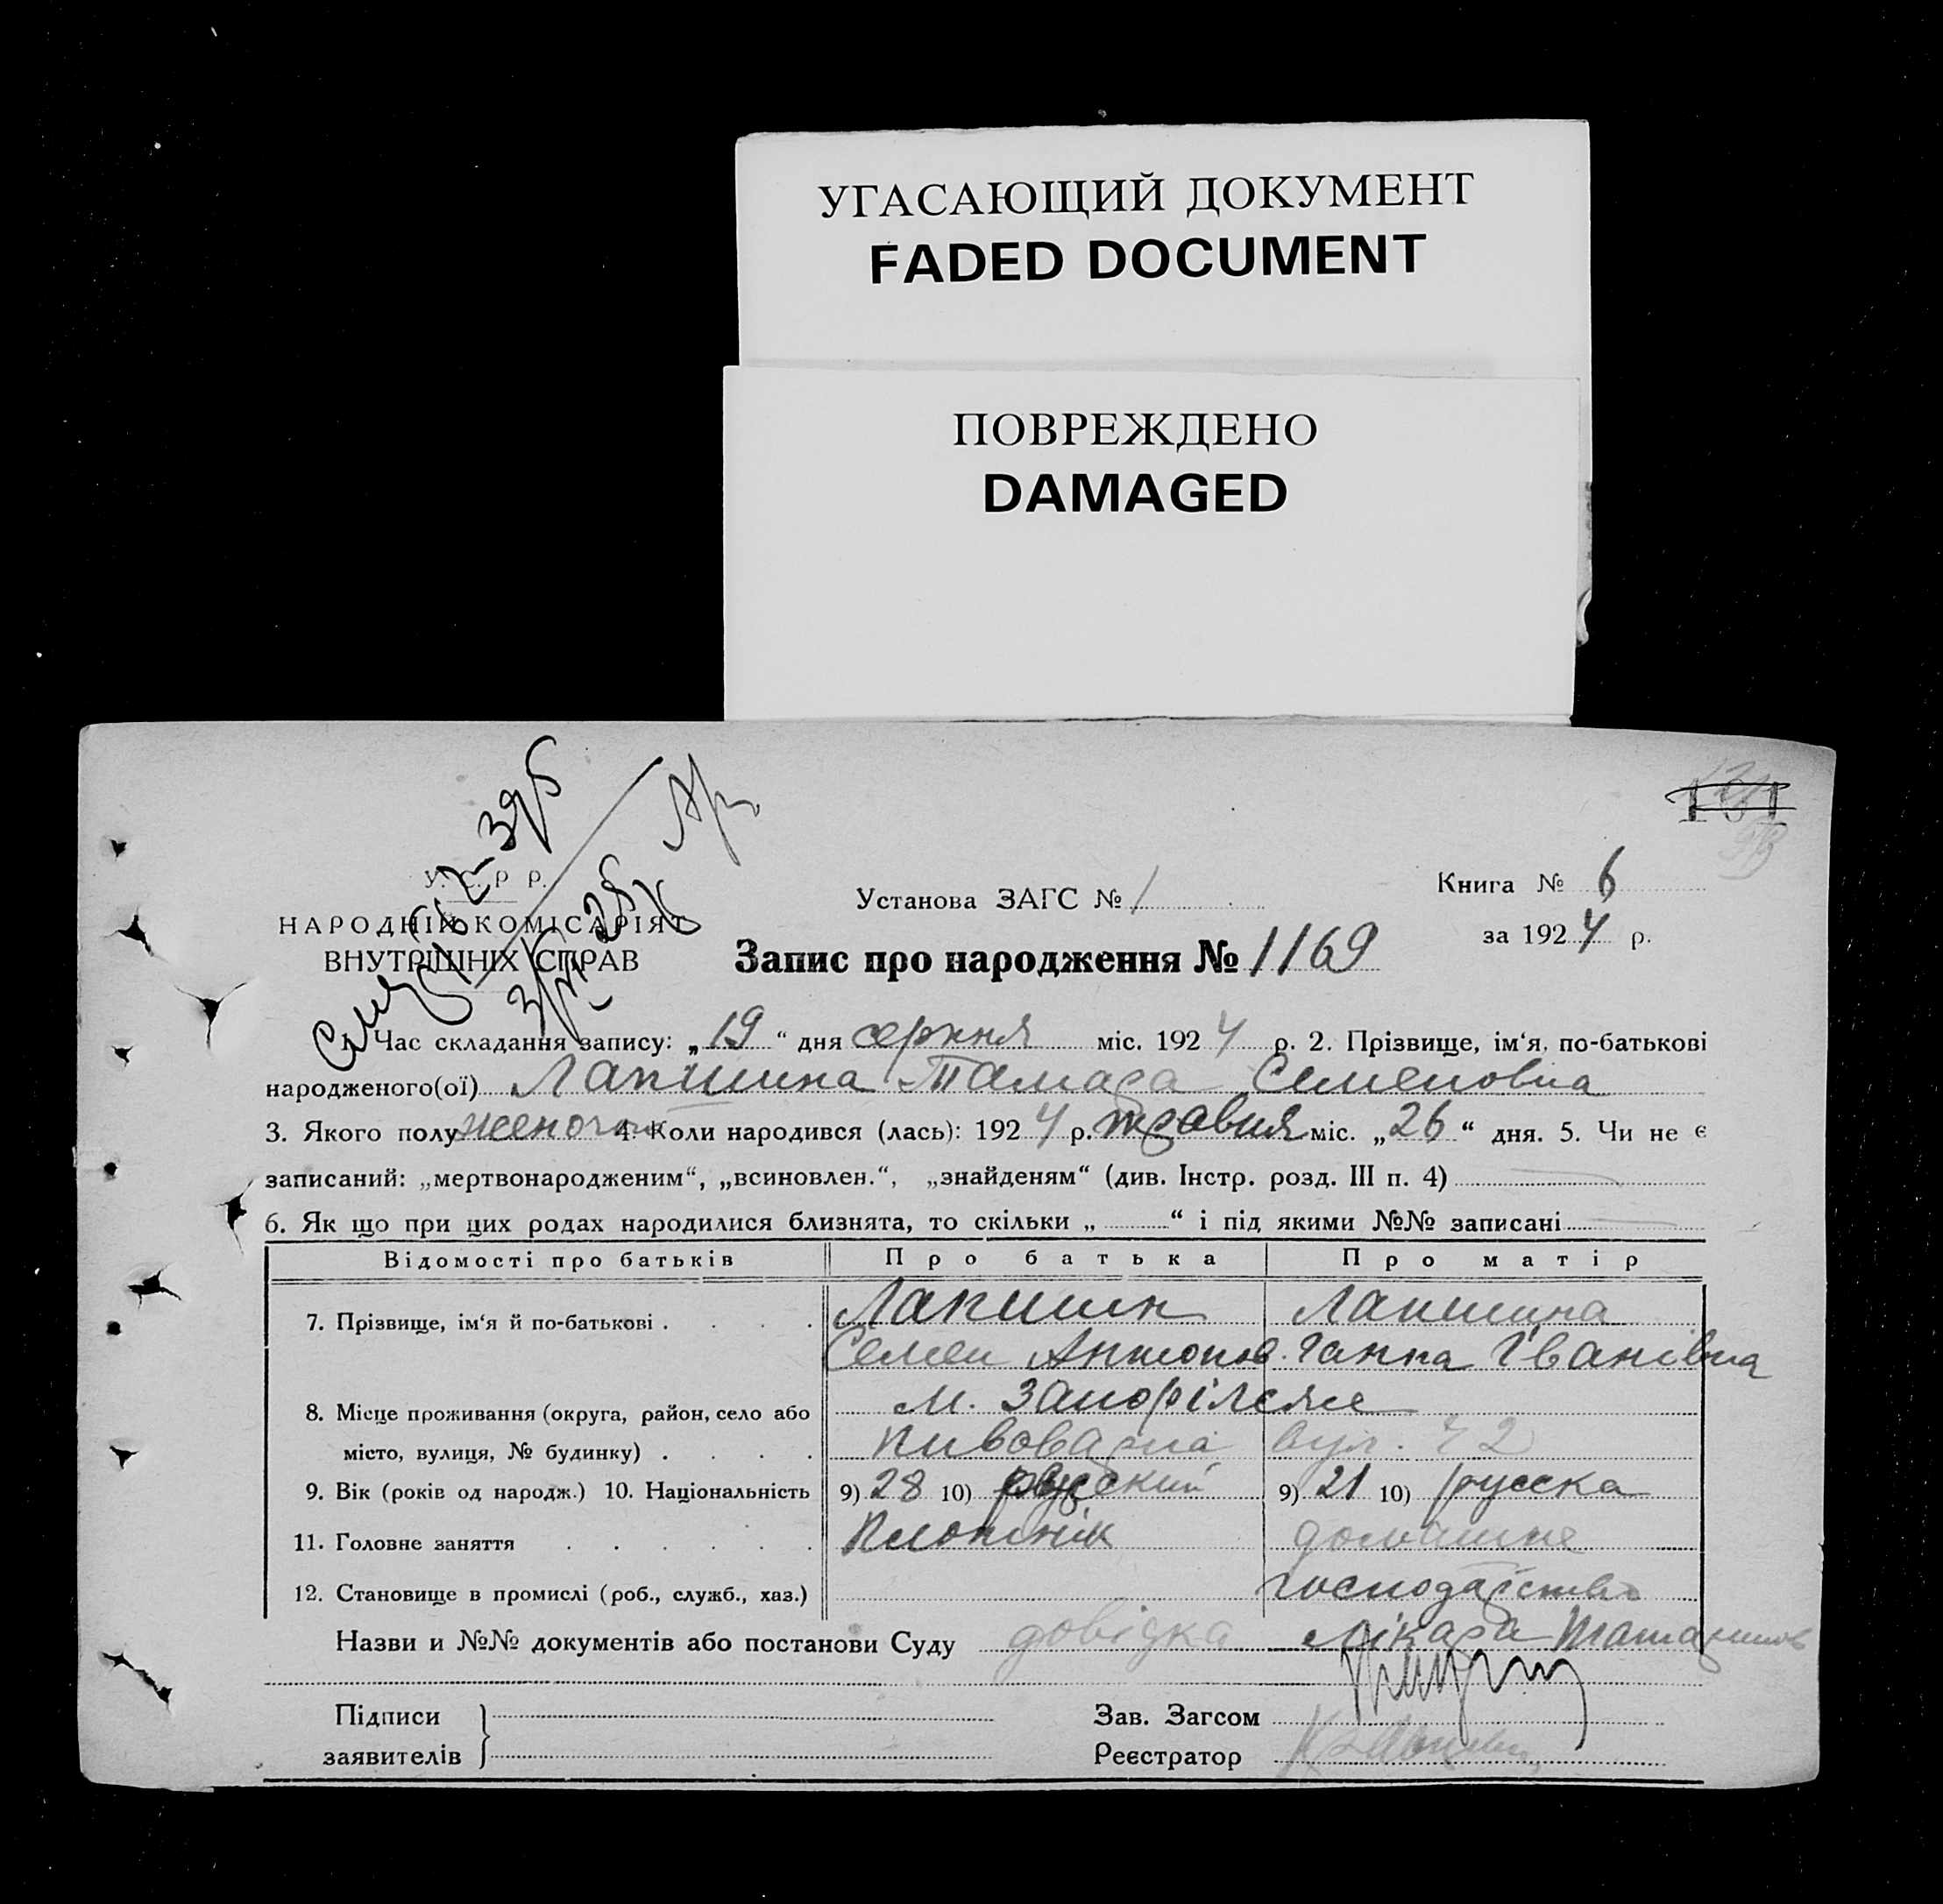 УГАСАЮЩИЙ ДОКУМЕНТ
FADED DOCUMENT
ПОВРЕЖДЕНО
DAMAGED
У. С. Р Р.
НАРОДНІЙ КОМІСАРІЯТ
ВНУТРІШНІХ СПРАВ
Установа ЗАГС № 1
Книга № 6
за 1924 р.
Запис про народження № 1169
1. Час складання запису: „19“ дня серпня міс. 1924 р. 2. Прізвище, ім‘я, по-батькові
народженого(ої) Лапшина Тамара Семеновна
3. Якого полу женочого 4. Коли народився (лась): 1924 р. травня міс. „26“ дня. 5. Чи не є
записаний: „мертвонародженим“, „всиновлен.“, „знайденям“ (див. Інстр. розд. III п. 4)
6. Як що при цих родах народилися близнята, то скільки „ “ і під якими №№ записані
Відомості про батьків Про батька Про матір
7. Прізвище, ім‘я й по-батькові . . . . Лапшин Лапшина
Семен Антонов. Ганна Іванівна
8. Місце проживання (округа, район, село або м. Запоріжже
місто, вулиця, № будинку) . . . . Пивоварна вул. 42
9. Вік (років од народж.) 10. Національність 9) 28 10) русский 9) 21 10) русска
11. Головне заняття . . . . . . Плотнік домашне
12. Становище в промислі (роб., служб., хаз.) господарство
Назви и №№ документів або постанови Суду довідка лікара
Підписи
заявителів
Зав. Загсом
Реєстратор